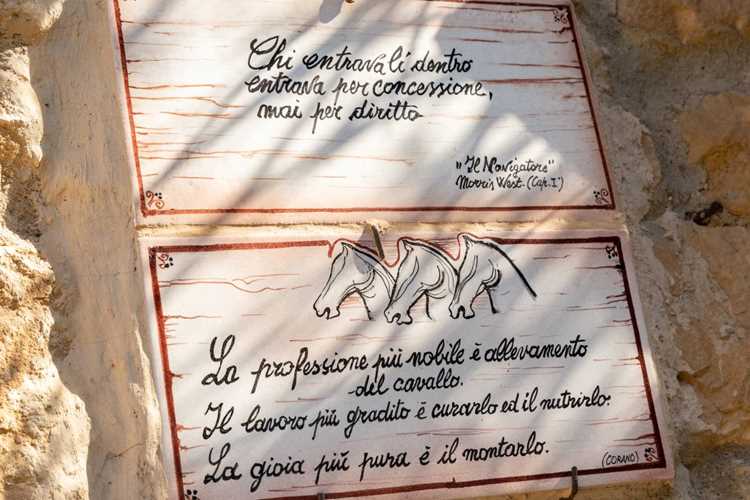 Chi entrava lí dentro
entrava per concessione,
mai per diritto
"Il Navigatore"
Morris West. (Cap. I°)
La professione più nobile è allevamento
del cavallo.
Il lavoro più gradito è curarlo ed il nutrirlo.
La gioia più pura è il montarlo.
(CORANO)